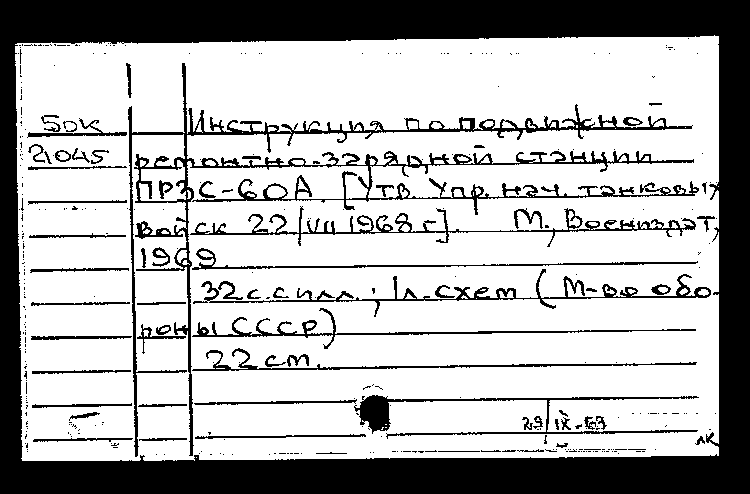 БОК Инструкция по подвижной
21045 ремонтно-зарядной станции
ПРЗС-60А. [Утв. Упр. нач. танковых
войск 22/VII 1968 г]. М., Воениздат,
1969.
32 с. с илл.; 1 л. схем (М-во обо-
роны СССР)
22 см.
29/IX-69
лк